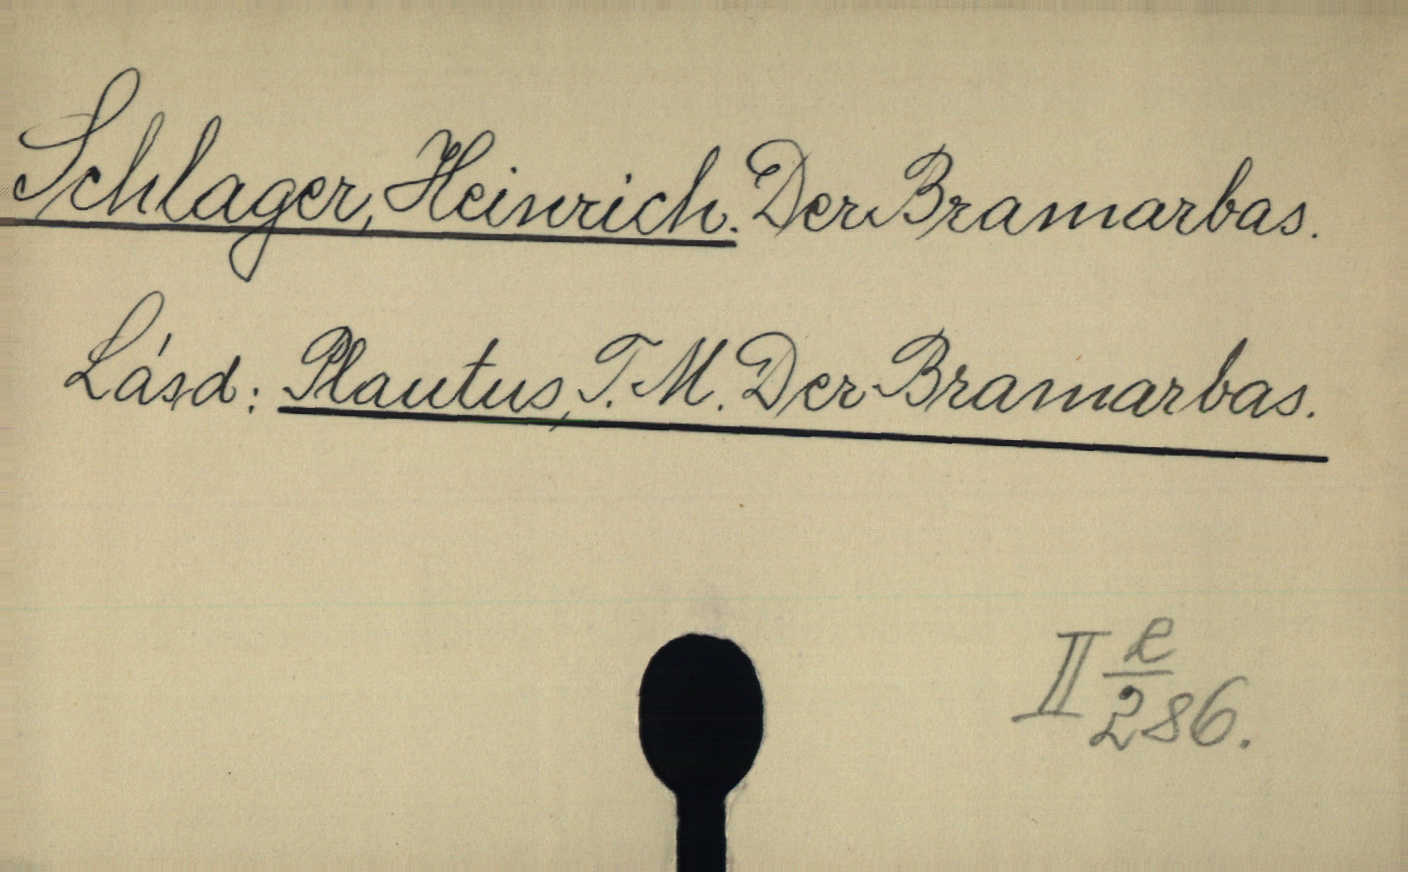 Schlager, Heinrich. Der Bramarbas.
Lásd: Plautus, T. M. Der Bramarbas.
II e/286.